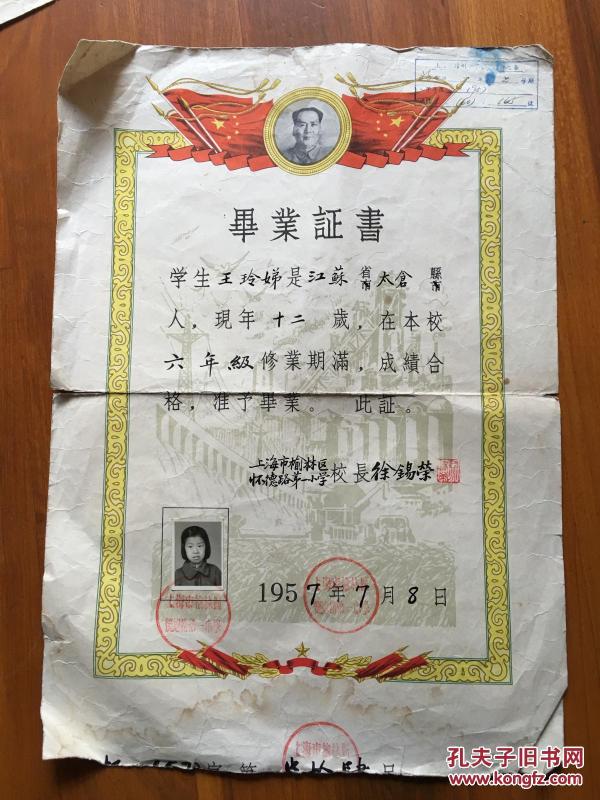 畢業証書
学生王玲娣是江蘇省市太倉縣市
人，現年十二歲，在本校
六年級修業期滿，成績合
格，准予畢業。此証。
上海市榆林区
怀德路第一小学校長徐錫榮
1957年7月8日
上海市榆林區
孔夫子旧书网
KONGFZ.COM